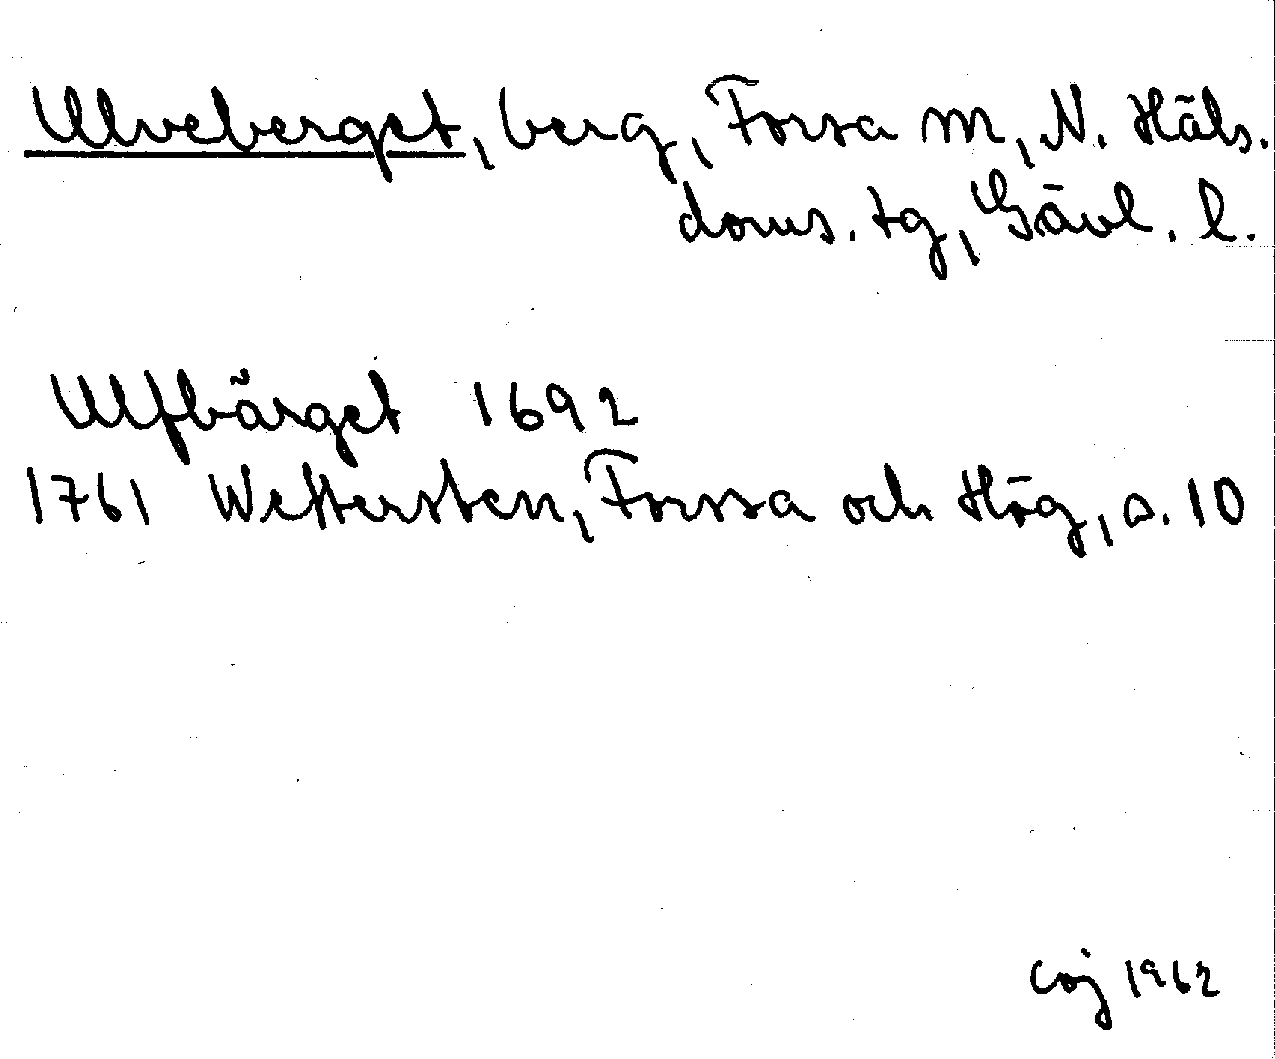 Ulveberget, berg, Forsa sn, N. Häls.
doms. tg, Gävl. l.
Ulfbärget 1692
1761 Wettersten, Forssa och Hög, s. 10
Coj 1962